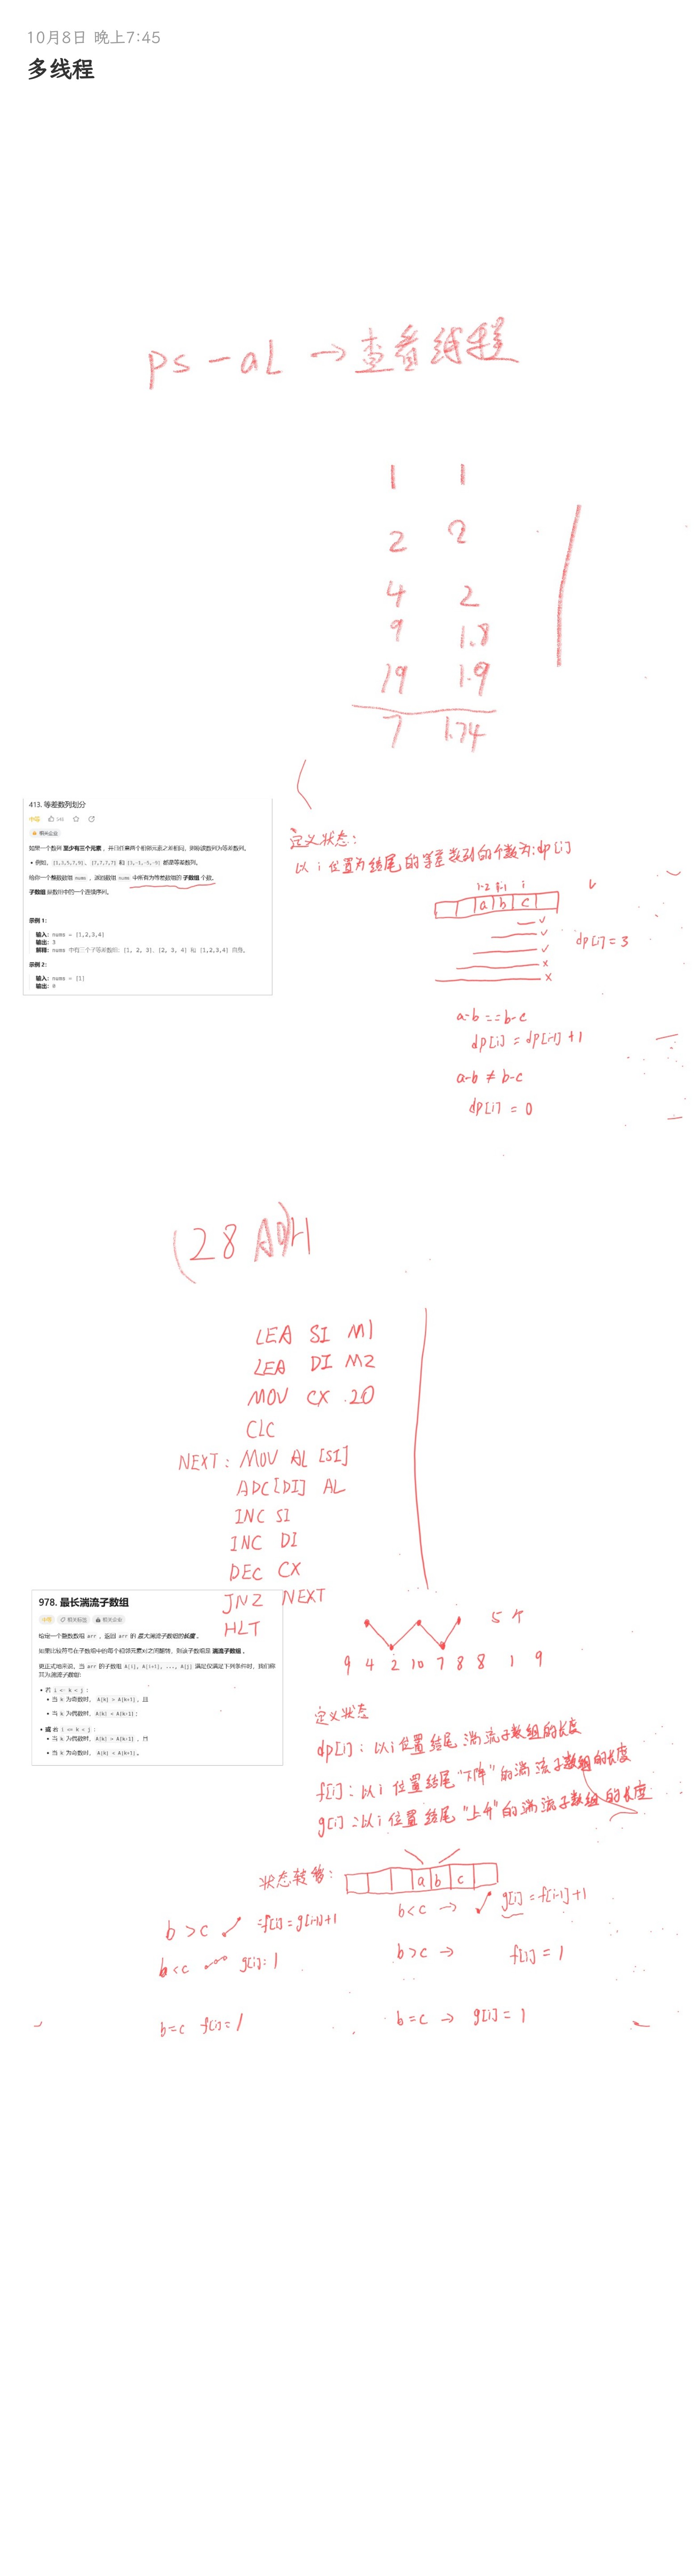 10月8日 晚上7:45
多线程
ps -aL → 查看线程
1 1
2 2
4 2
9 1.8
19 1.9
7 1.74
413. 等差数列划分
中等
相关企业
如果一个数列 至少有三个元素 ,并且任意两个相邻元素之差相同,则称该数列为等差数列。
• 例如, [1,3,5,7,9]、[7,7,7,7] 和 [3,-1,-5,-9] 都是等差数列。
给你一个整数数组 nums ,返回数组 nums 中所有为等差数组的 子数组 个数。
子数组 是数组中的一个连续序列。
示例 1:
输入: nums = [1,2,3,4]
输出: 3
解释: nums 中有三个子等差数组: [1, 2, 3]、[2, 3, 4] 和 [1,2,3,4] 自身。
示例 2:
输入: nums = [1]
输出: 0
定义状态:
以 i 位置为结尾的等差数列的个数为:dp[i]
i-2 i-1 i
a b c
dp[i] = 3
a-b == b-c
dp[i] = dp[i-1] + 1
a-b ≠ b-c
dp[i] = 0
LEA SI M1
LEA DI M2
MOV CX 20
CLC
NEXT: MOV AL [SI]
ADC [DI] AL
INC SI
INC DI
DEC CX
JNZ NEXT
HLT
978. 最长湍流子数组
中等 相关标签 相关企业
给定一个整数数组 arr ,返回 arr 的 最大湍流子数组的长度 。
如果比较符号在子数组中的每个相邻元素对之间翻转,则该子数组是 湍流子数组 。
更正式地来说,当 arr 的子数组 A[i], A[i+1], ..., A[j] 满足仅满足下列条件时,我们称其为湍流子数组:
• 若 i <= k < j :
• 当 k 为奇数时, A[k] > A[k+1],且
• 当 k 为偶数时, A[k] < A[k+1];
• 或 若 i <= k < j :
• 当 k 为偶数时, A[k] > A[k+1] ,且
• 当 k 为奇数时, A[k] < A[k+1]。
5 个
9 4 2 10 7 8 8 1 9
定义状态
dp[i]: 以 i 位置结尾 湍流子数组的长度
f[i]: 以 i 位置结尾"下降"的湍流子数组的长度
g[i]: 以 i 位置结尾"上升"的湍流子数组的长度
状态转移:
a b c
b > c f[i] = g[i-1]+1
b < c → g[i] = f[i-1]+1
b < c g[i]= 1
b > c → f[i] = 1
b = c f[i] = 1
b = c → g[i] = 1